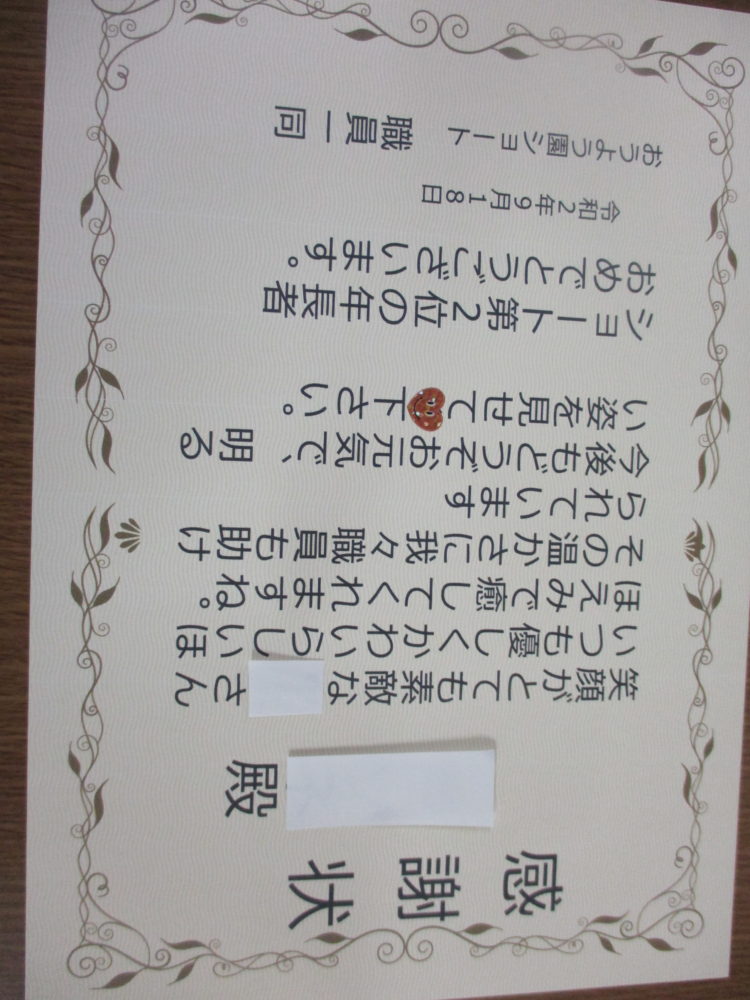 感謝状
殿
笑顔がとても素敵な さん
いつも優しくかわいらしいほ
ほえみで癒してくれますね。
その温かさに我々職員も助け
られています
今後もどうぞお元気で、明る
い姿を見せて下さい。
ショート第2位の年長者
おめでとうございます。
令和2年9月18日
おうよう園ショート 職員一同